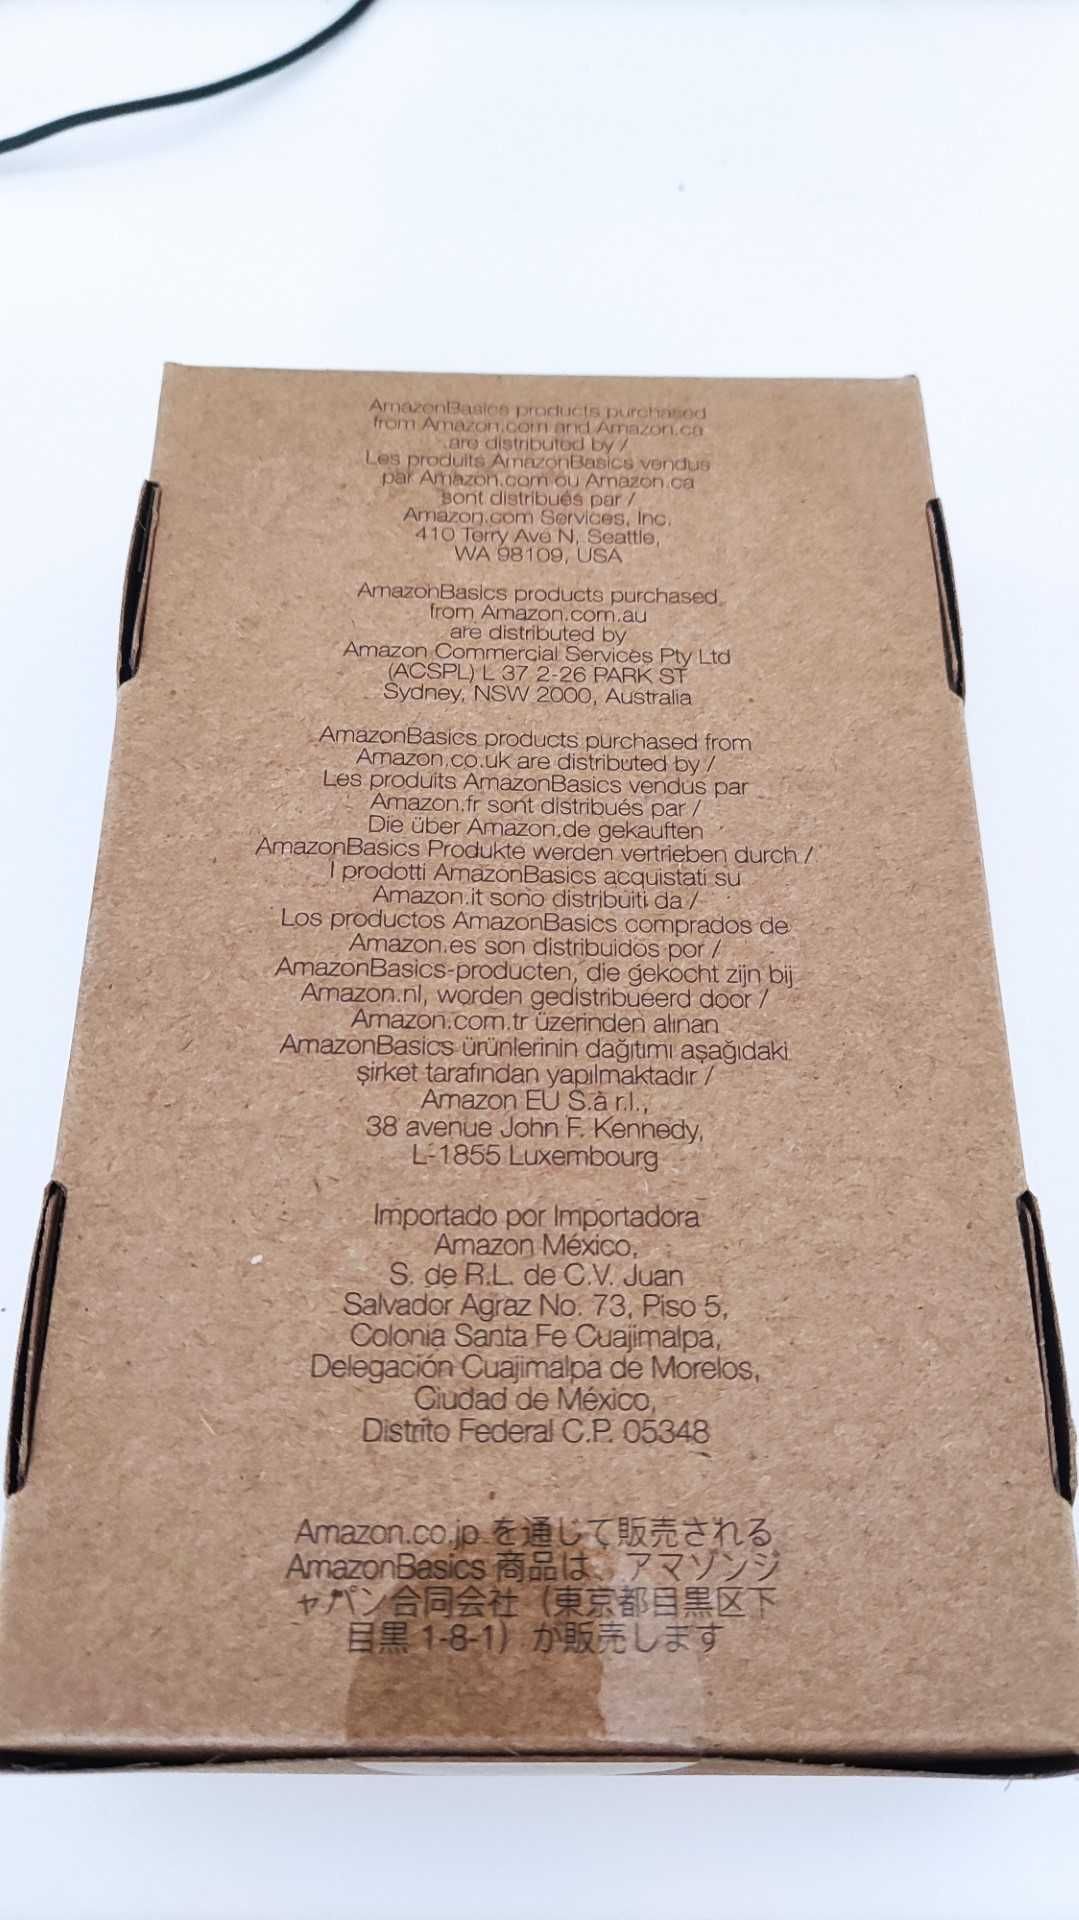 AmazonBasics products purchased
from Amazon.com and Amazon.ca
are distributed by /
Les produits AmazonBasics vendus
par Amazon.com ou Amazon.ca
sont distribués par /
Amazon.com Services, Inc.
410 Terry Ave N, Seattle,
WA 98109, USA
AmazonBasics products purchased
from Amazon.com.au
are distributed by
Amazon Commercial Services Pty Ltd
(ACSPL) L 37 2-26 PARK ST
Sydney, NSW 2000, Australia
AmazonBasics products purchased from
Amazon.co.uk are distributed by /
Les produits AmazonBasics vendus par
Amazon.fr sont distribués par /
Die über Amazon.de gekauften
AmazonBasics Produkte werden vertrieben durch /
I prodotti AmazonBasics acquistati su
Amazon.it sono distribuiti da /
Los productos AmazonBasics comprados de
Amazon.es son distribuidos por /
AmazonBasics-producten, die gekocht zijn bij
Amazon.nl, worden gedistribueerd door /
Amazon.com.tr üzerinden alınan
AmazonBasics ürünlerinin dağıtımı aşağıdaki
şirket tarafından yapılmaktadır /
Amazon EU S.à r.l.,
38 avenue John F. Kennedy,
L-1855 Luxembourg
Importado por Importadora
Amazon México,
S. de R.L. de C.V. Juan
Salvador Agraz No. 73, Piso 5,
Colonia Santa Fe Cuajimalpa,
Delegación Cuajimalpa de Morelos,
Ciudad de México,
Distrito Federal C.P. 05348
Amazon.co.jp を通じて販売される
AmazonBasics 商品は、アマゾンジ
ャパン合同会社（東京都目黒区下
目黒 1-8-1）が販売します